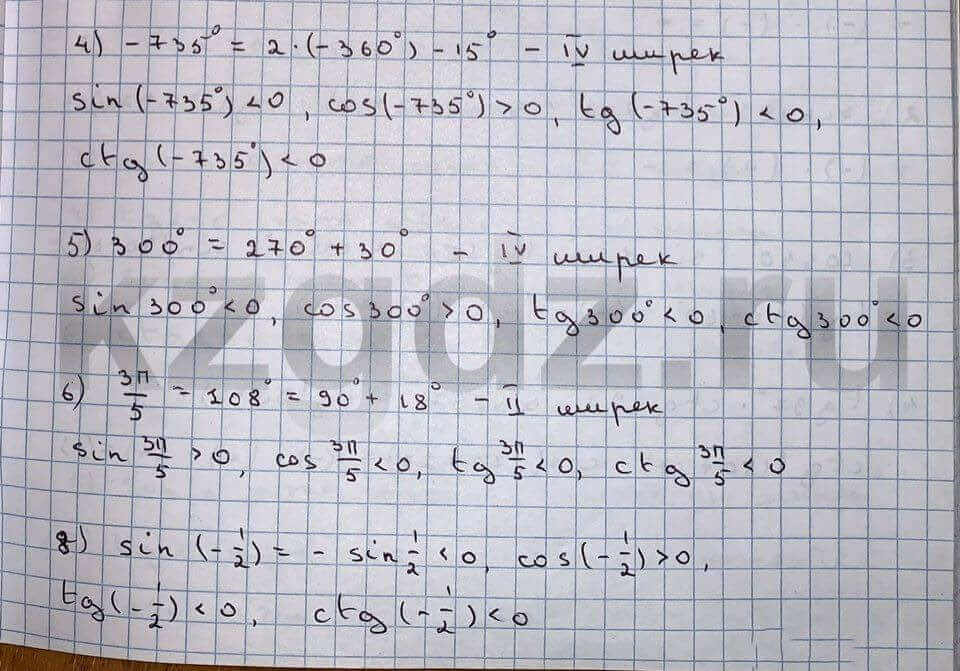 4) -735° = 2·(-360°) - 15° - IV ширек
sin(-735°) < 0, cos(-735°) > 0, tg(-735°) < 0,
ctg(-735°) < 0
5) 300° = 270° + 30° - IV ширек
sin 300° < 0, cos 300° > 0, tg 300° < 0, ctg 300° < 0
kzgdz.ru
6) 3π/5 = 108° = 90° + 18° - II ширек
sin 3π/5 > 0, cos 3π/5 < 0, tg 3π/5 < 0, ctg 3π/5 < 0
8) sin(-1/2) = - sin 1/2 < 0, cos(-1/2) > 0,
tg(-1/2) < 0, ctg(-1/2) < 0